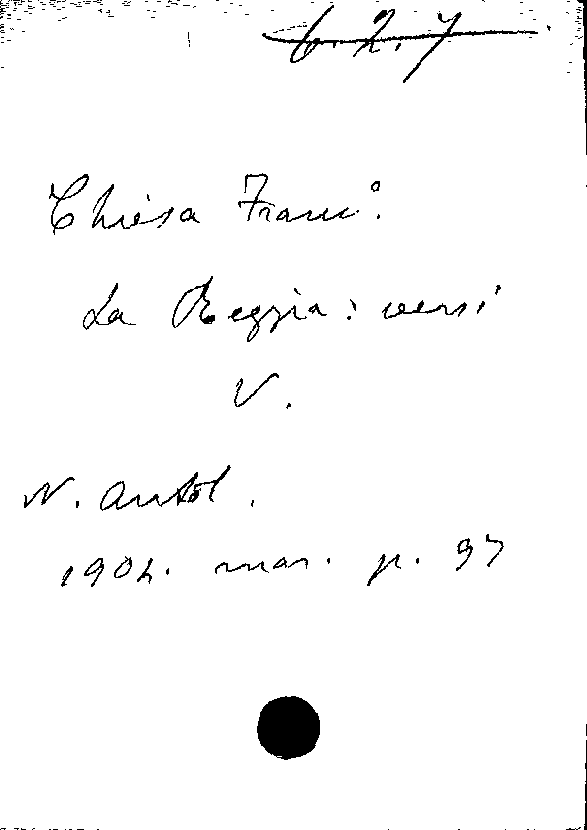 6.2.7
Chiesa Franc°.
La Reggia: versi
V.
N. Antol.
1904. mar. p. 97